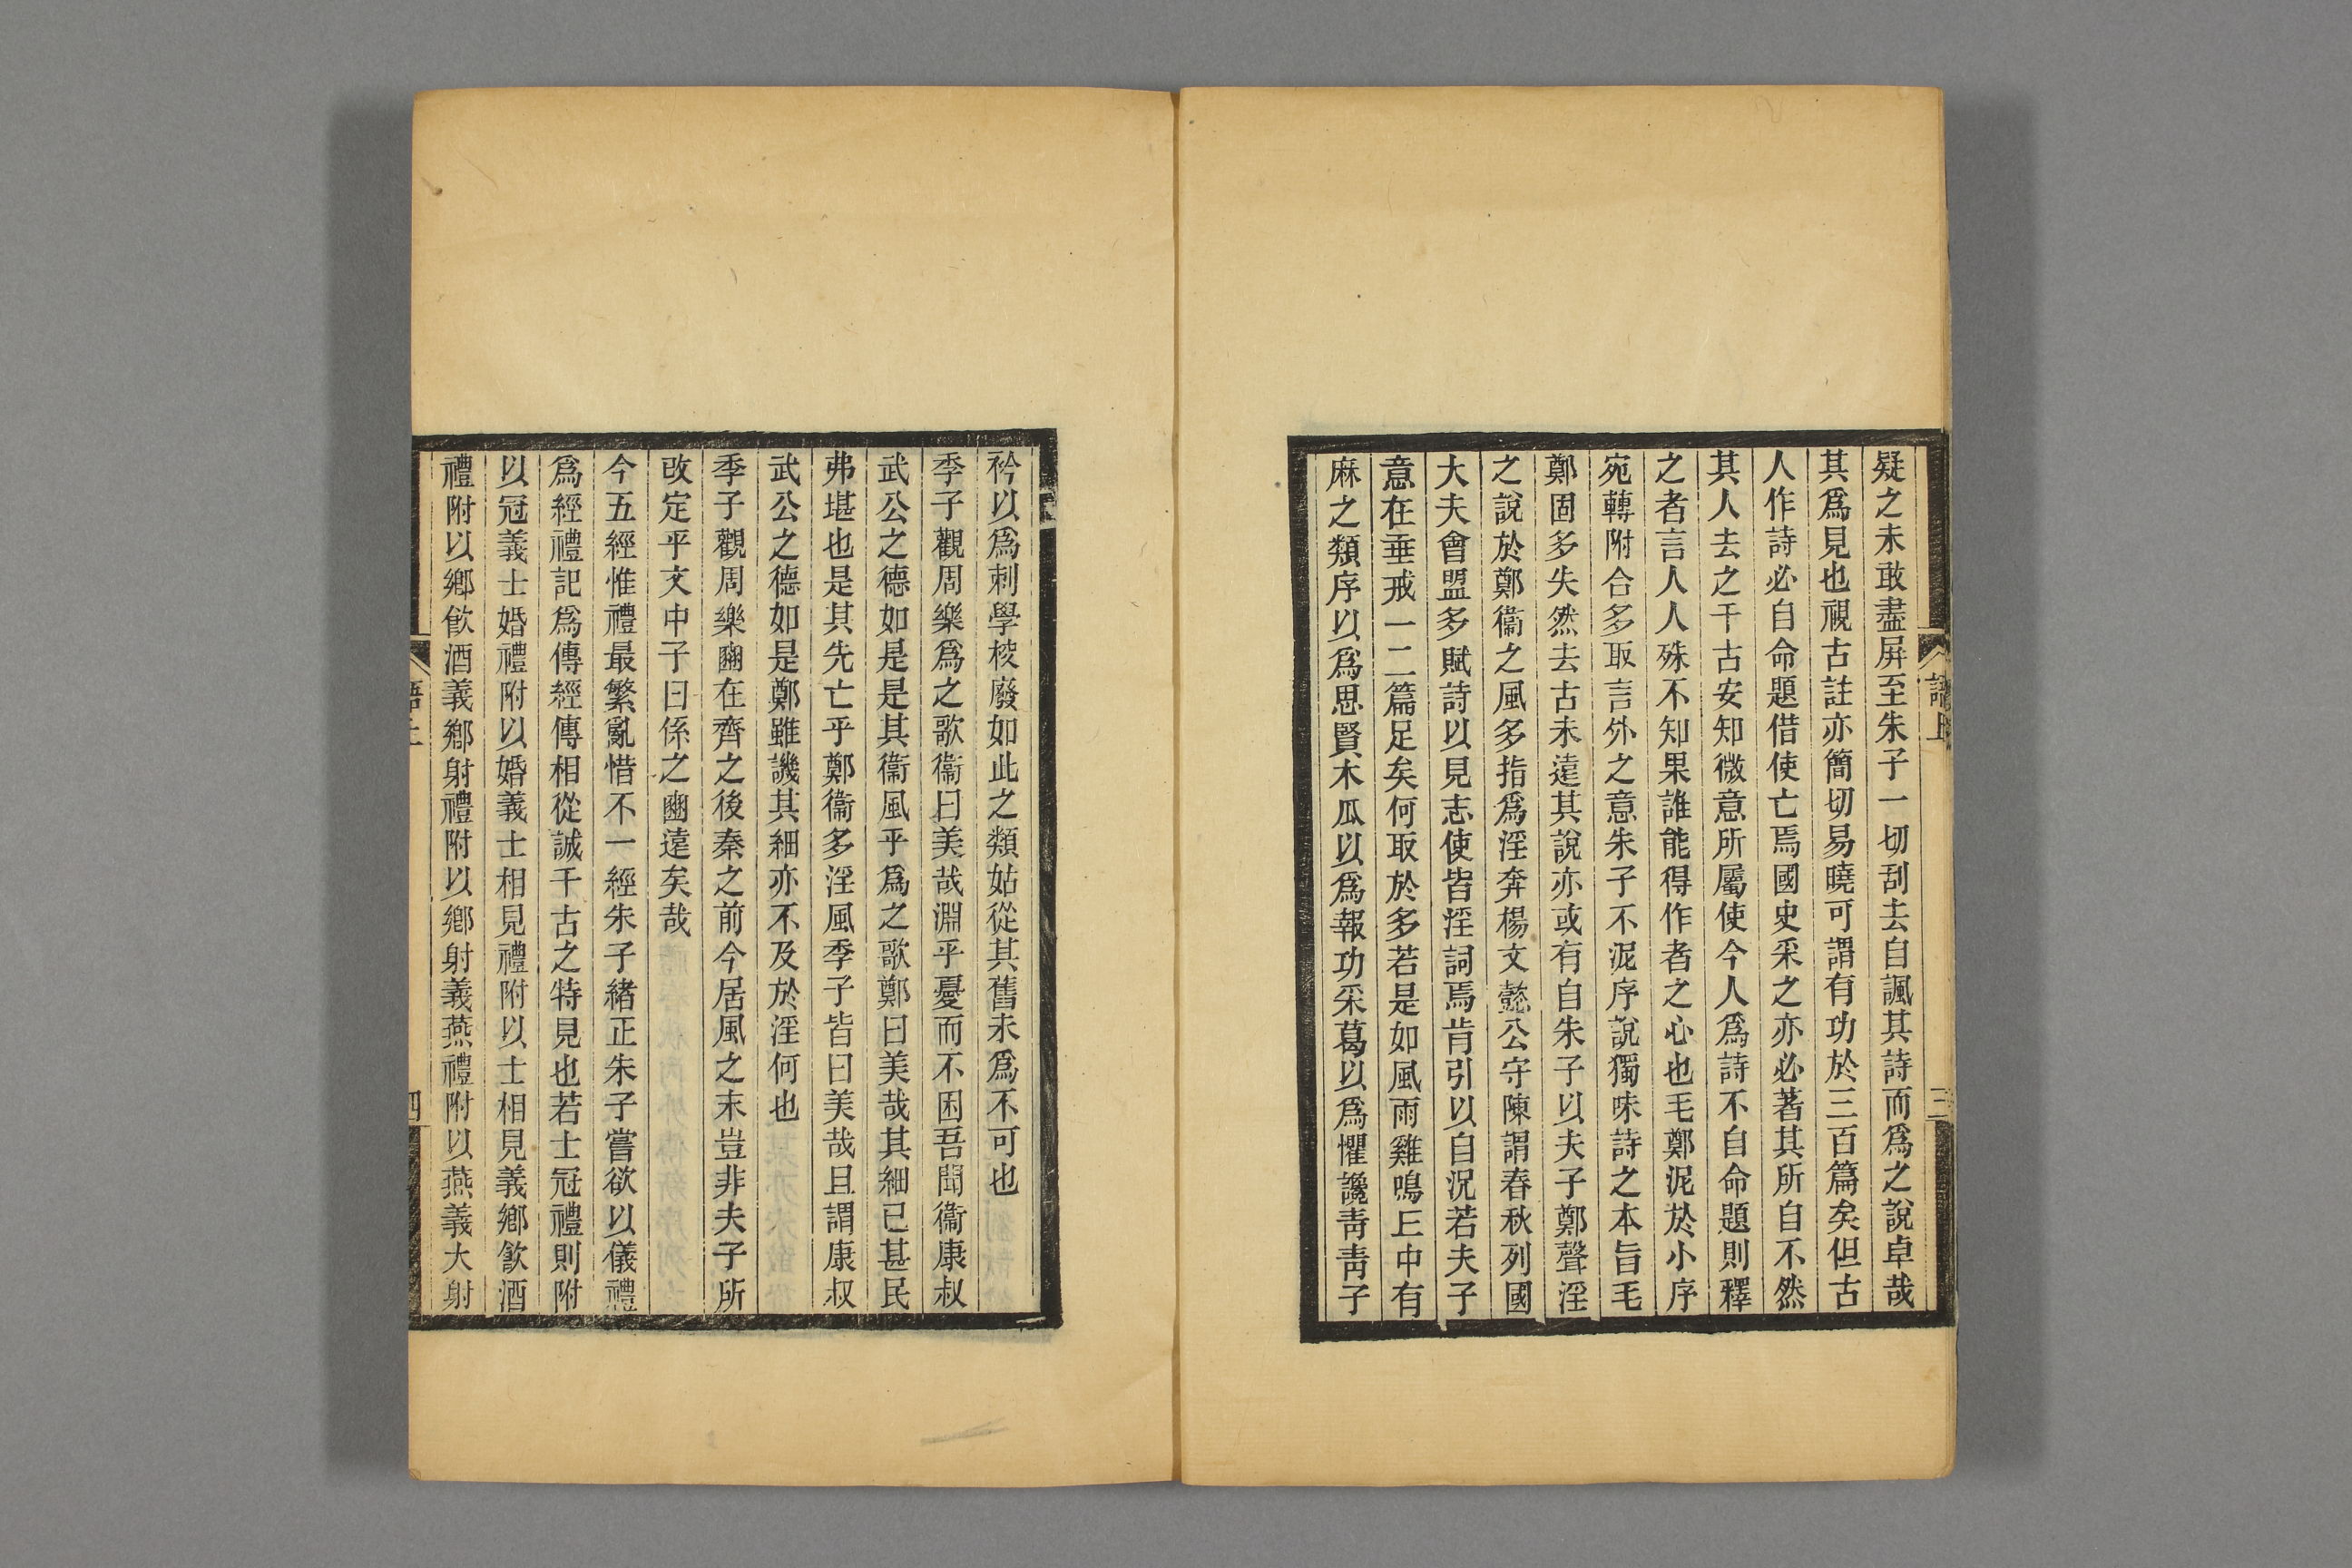 疑之未敢盡屏至朱子一切刮去自諷其詩而爲之說卓哉
其爲見也視古註亦簡切易曉可謂有功於三百篇矣但古
人作詩必自命題借使亡焉國史采之亦必著其所自不然
其人去之千古安知微意所屬使今人爲詩不自命題則釋
之者言人人殊不知果誰能得作者之心也毛鄭泥於小序
宛轉附合多取言外之意朱子不泥序說獨味詩之本旨毛
鄭固多失然去古未遠其說亦或有自朱子以夫子鄭聲淫
之說於鄭衞之風多指爲淫奔楊文懿公守陳謂春秋列國
大夫會盟多賦詩以見志使皆淫詞焉肯引以自況若夫子
意在垂戒一二篇足矣何取於多若是如風雨雞鳴丘中有
麻之類序以爲思賢木瓜以爲報功采葛以爲懼讒靑靑子
語上
三
衿以爲刺學校廢如此之類姑從其舊未爲不可也
季子觀周樂爲之歌衞曰美哉淵乎憂而不困吾聞衞康叔
武公之德如是是其衞風乎爲之歌鄭曰美哉其細已甚民
弗堪也是其先亡乎鄭衞多淫風季子皆曰美哉且謂康叔
武公之德如是鄭雖譏其細亦不及於淫何也
季子觀周樂豳在齊之後秦之前今居風之末豈非夫子所
改定乎文中子曰係之豳遠矣哉
今五經惟禮最繁亂惜不一經朱子緒正朱子嘗欲以儀禮
爲經禮記爲傳經傳相從誠千古之特見也若士冠禮則附
以冠義士婚禮附以婚義士相見禮附以士相見義鄉飮酒
禮附以鄉飮酒義鄉射禮附以鄉射義燕禮附以燕義大射
語上
四